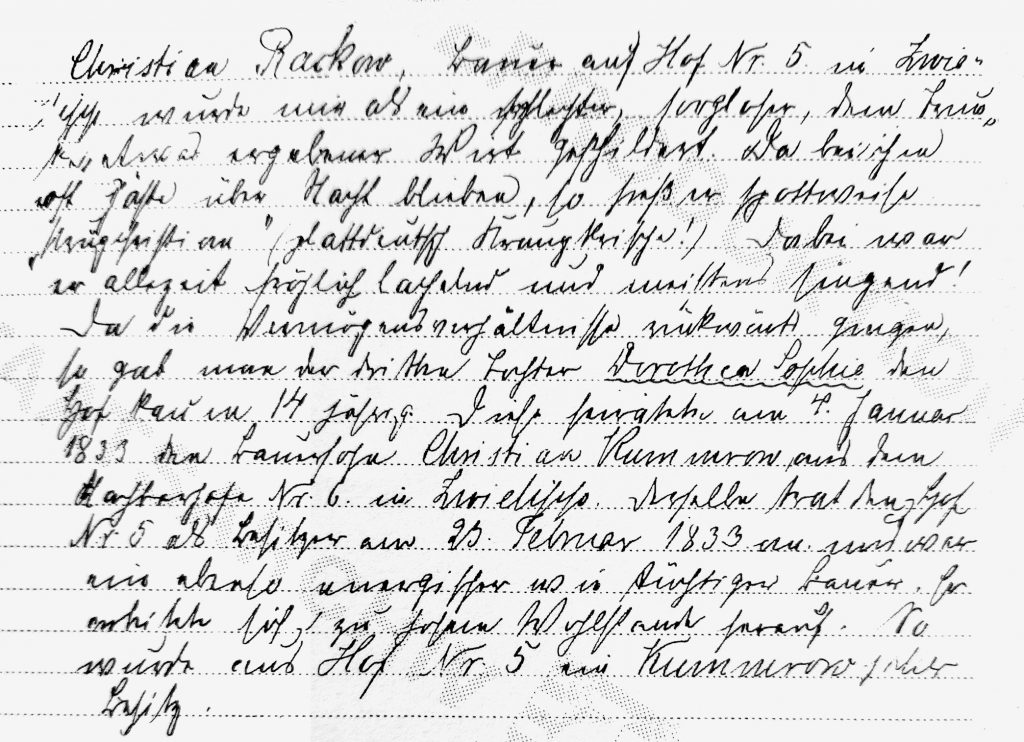 Christian Rackow, Bauer auf Hof Nr. 5 in Zwie-
wurde mir als ein schlechter, sorgloser, dem Trun-
ke etwas ergebener Wirt geschildert. Da bei ihm
oft Gäste über Nacht blieben, so hieß er spottweise
„Krugchristian“ (plattdeutsch Kraugkrische!) Dabei war
er allezeit fröhlich lachend und meistens singend!
Da die Vermögensverhältnisse rückwärts gingen,
so gab man der dritten Tochter Dorothea Sophie den
Hof kaum 14 jährig. Diese heiratete am 4. Januar
1833 den Bauersohn Christian Kummrow aus dem
Nachbarhofe Nr. 6. in Derselbe trat den Hof
Nr. 5 als Besitzer am 23. Februar 1833 an und war
ein ebenso energischer wie tüchtiger Bauer. Er
arbeitete sich zu hohem Wohlstande herauf. So
wurde aus Hof Nr. 5 ein Kummrowscher
Besitz.